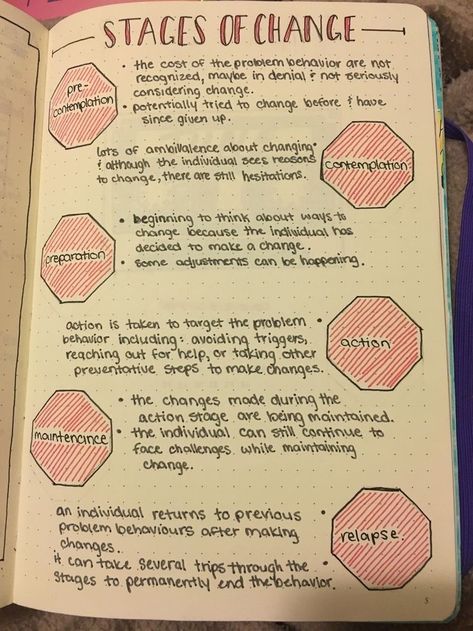 STAGES OF CHANGE
pre-
contemplation
• the cost of the problem behavior are not
recognized, maybe in denial & not seriously
considering change.
• potentially tried to change before & have
since given up.
lots of ambivalence about changing •
& although the individual sees reasons
to change, there are still hesitations.
contemplation
preparation
• beginning to think about ways to
change because the individual has
decided to make a change.
• some adjustments can be happening.
action is taken to target the problem •
behavior including: avoiding triggers,
reaching out for help, or taking other
preventative steps to make changes.
action
maintenince
• the changes made during the
action stage are being maintained.
• the individual can still continue to
face challenges while maintaining
change.
an individual returns to previous •
problem behaviours after making
changes.
it can take several trips through the •
stages to permanently end the behavior.
relapse.
5